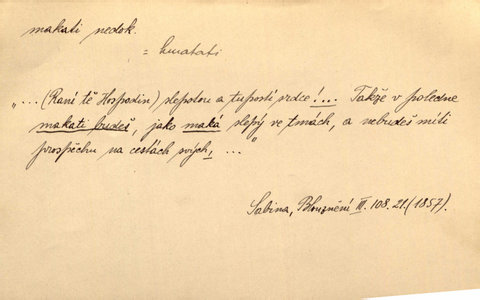 makati nedok.
= hmatati
„... (Raní tě Hospodin) slepotou a tupostí srdce!... Takže v poledne
makati budeš, jako maká slepý ve tmách, a nebudeš míti
prospěchu na cestách svých, ..."
Sabina, Blouznění III. 108. 21. (1857).